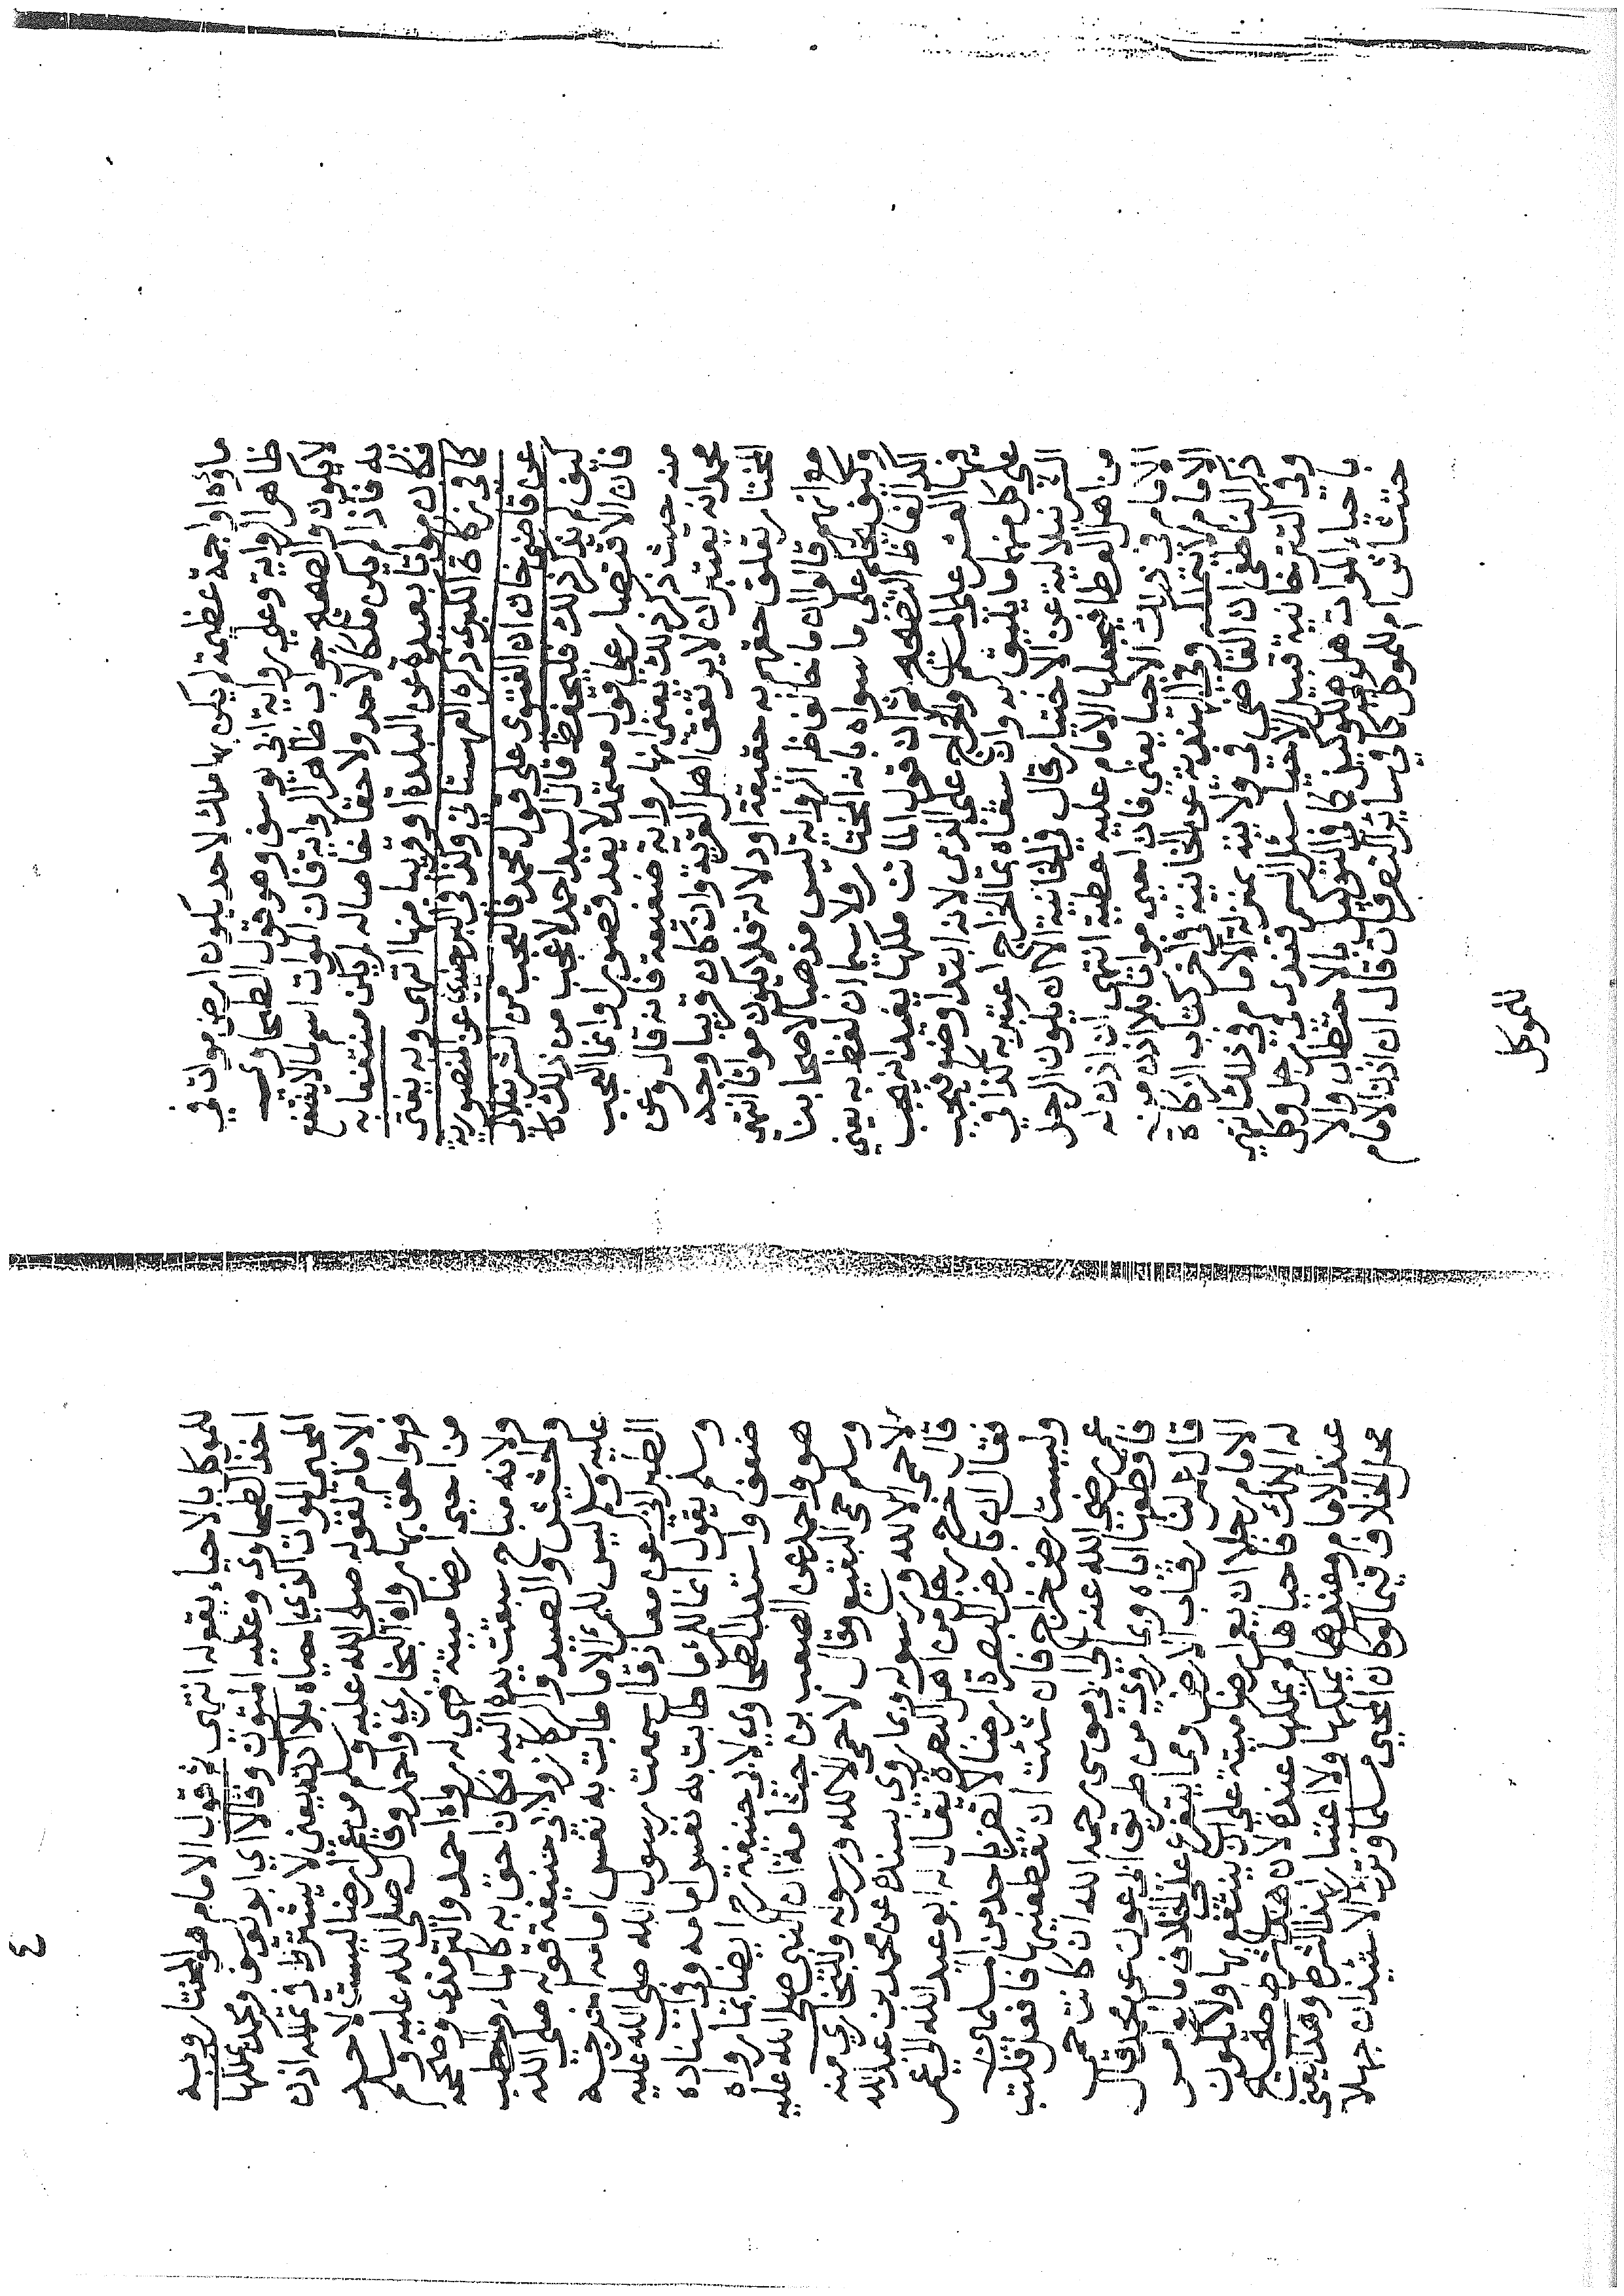 ماؤه او اجمة عظيمة لم يكن بها ملك لاحد يكون ارض موات في
ظاهر الرواية وعلى رواية ابي يوسف وهو قول الطحاوي
لا يكون والصحيح جواب ظاهر الرواية فان الموات اسم لما لا ينتفع
به فاذا لم يكن ملكا لاحد ولا حقا خاصا له لم يكن منتفعا به
فكان مواتا بعيدة عن البلدة او قريبا منها انتهى وبه يفتى
كما في زكاة الكبرى ذكره القهستاني ولذا في البرجندي عن المنصورية
عن قاضي خان ان الفتوى على قول محمد فالعجب من الشرنبلالي
كيف لم يذكر ذلك فليحفظ قال السيد احمد لا عجب من ذلك
فان الاقتصار على قول معتمد لا يعد قصورا وانما العجب
منه حيث ذكر ذلك يعني انها رواية ضعيفة فانه قال وعن
محمد انه يعتبر ان لا يرتفق اهل القرية وان كان قريبا وجه
المختار تعلق حقهم به حقيقة او دلالة فلا يكون مواتا انتهى
مع انهم قالوا ان ما خالف ظاهر الرواية ليس مذهبا لاصحابنا
وكيف يحكم على ما سواه بانه المختار ولا سيما ان لفظ به يفتى
اكد الفاظ التصحيح ثم ان قول الماتن ملكها يفيد انه يجب
فيها العشر على المسلم والخراج على الذمي لانه ابتداء وضع فيجب
على كل منهما ما يليق به وان سقاه بماء الخراج اعتبر به كذا في
الشرنبلالية عن الاختيار قال في الخانية الا ان يكون الرجل
من اهل العطا فيجعلها الامام عليه عطية انتهى ان اذن له
الامام في ذلك الاحيا يعني فان احيى مواتا بلا اذن من
الامام لا يملكه وفي الهندية عن الخانية في اخر كتاب الزكاة
ذكر الناطفي ان القاضي في ولايته بمنزلة الامام في ذلك انتهى
وفي التترخانية قبيل الاحتساب سئل السمرقندي في رجل وكل
باحياء الموات هل هو للوكيل كما في التوكيل بالاحتطاب والا
حتشاش ام للموكل كما في سائر التصرفات قال ان اذن الامام
للموكل
٤
للموكل بالاحياء يقع له انتهى ثم قول الامام هو المختار وبه
اخذ الطحاوي وعليه المتون وقالا اي ابو يوسف ومحمد يملكها
المحيي الموات الذي احياه بلا اذنه يعني لا يشترط في تملكه اذن
الامام لقوله صلى الله عليه وسلم من عمر ارضا ليست لاحد
فهو احق بها رواه البخاري واحمد وقال صلى الله عليه وسلم
من احيى ارضا ميتة فهي له رواه احمد والترمذي وصححه
ولانه مباح سبقت يده اليه فكان احق به كالماء والحطب
والحشيش والصيد والركاز ولابي حنيفة قوله صلى الله
عليه وسلم ليس للمرء الا ما طابت به نفس امامه اخرجه
الطبراني عن معاذ قال سمعت رسول الله صلى الله عليه
وسلم يقول انما للمرء ما طابت به نفس امامه وفي اسناده
ضعف واستدل الطحاوي لابي حنيفة ايضا بما رواه
هو واحمد عن الصعب بن جثامة ان النبي صلى الله عليه
وسلم حمى البقيع وقال لا حمى الا لله ورسوله وللبخاري منه
لا حمى الا لله ورسوله وبما روي بسنده عن محمد بن عبد الله
قال خرج رجل من اهل البصرة يقال له ابو عبد الله الى عمر
فقال ان بارض البصرة ارضا لا تضر باحد من المسلمين
وليست ارض خراج فان شئت ان تقطعنيها فافعل فكتب
عمر رضي الله عنه الى ابي موسى رحمه الله ان كانت حمى
فاقطعها اياه وبما روي من طريق ابن عون عن محمد قال
قال عمر لنا رقاب الارض ومما يتفرع على الخلاف ما لو امر
الامام رجلا ان يعمر ارضا ميتة على ان ينتفع بها ولا يكون
له الملك فاحياها لم يملكها عنده لان هذا شرط صحيح
عند الامام وعندهما يملكها ولا اعتبار لهذا الشرط وهذا يعني
محل الخلاف فيما لو كان المحيي مسلما وترك الاستئذان جهلا